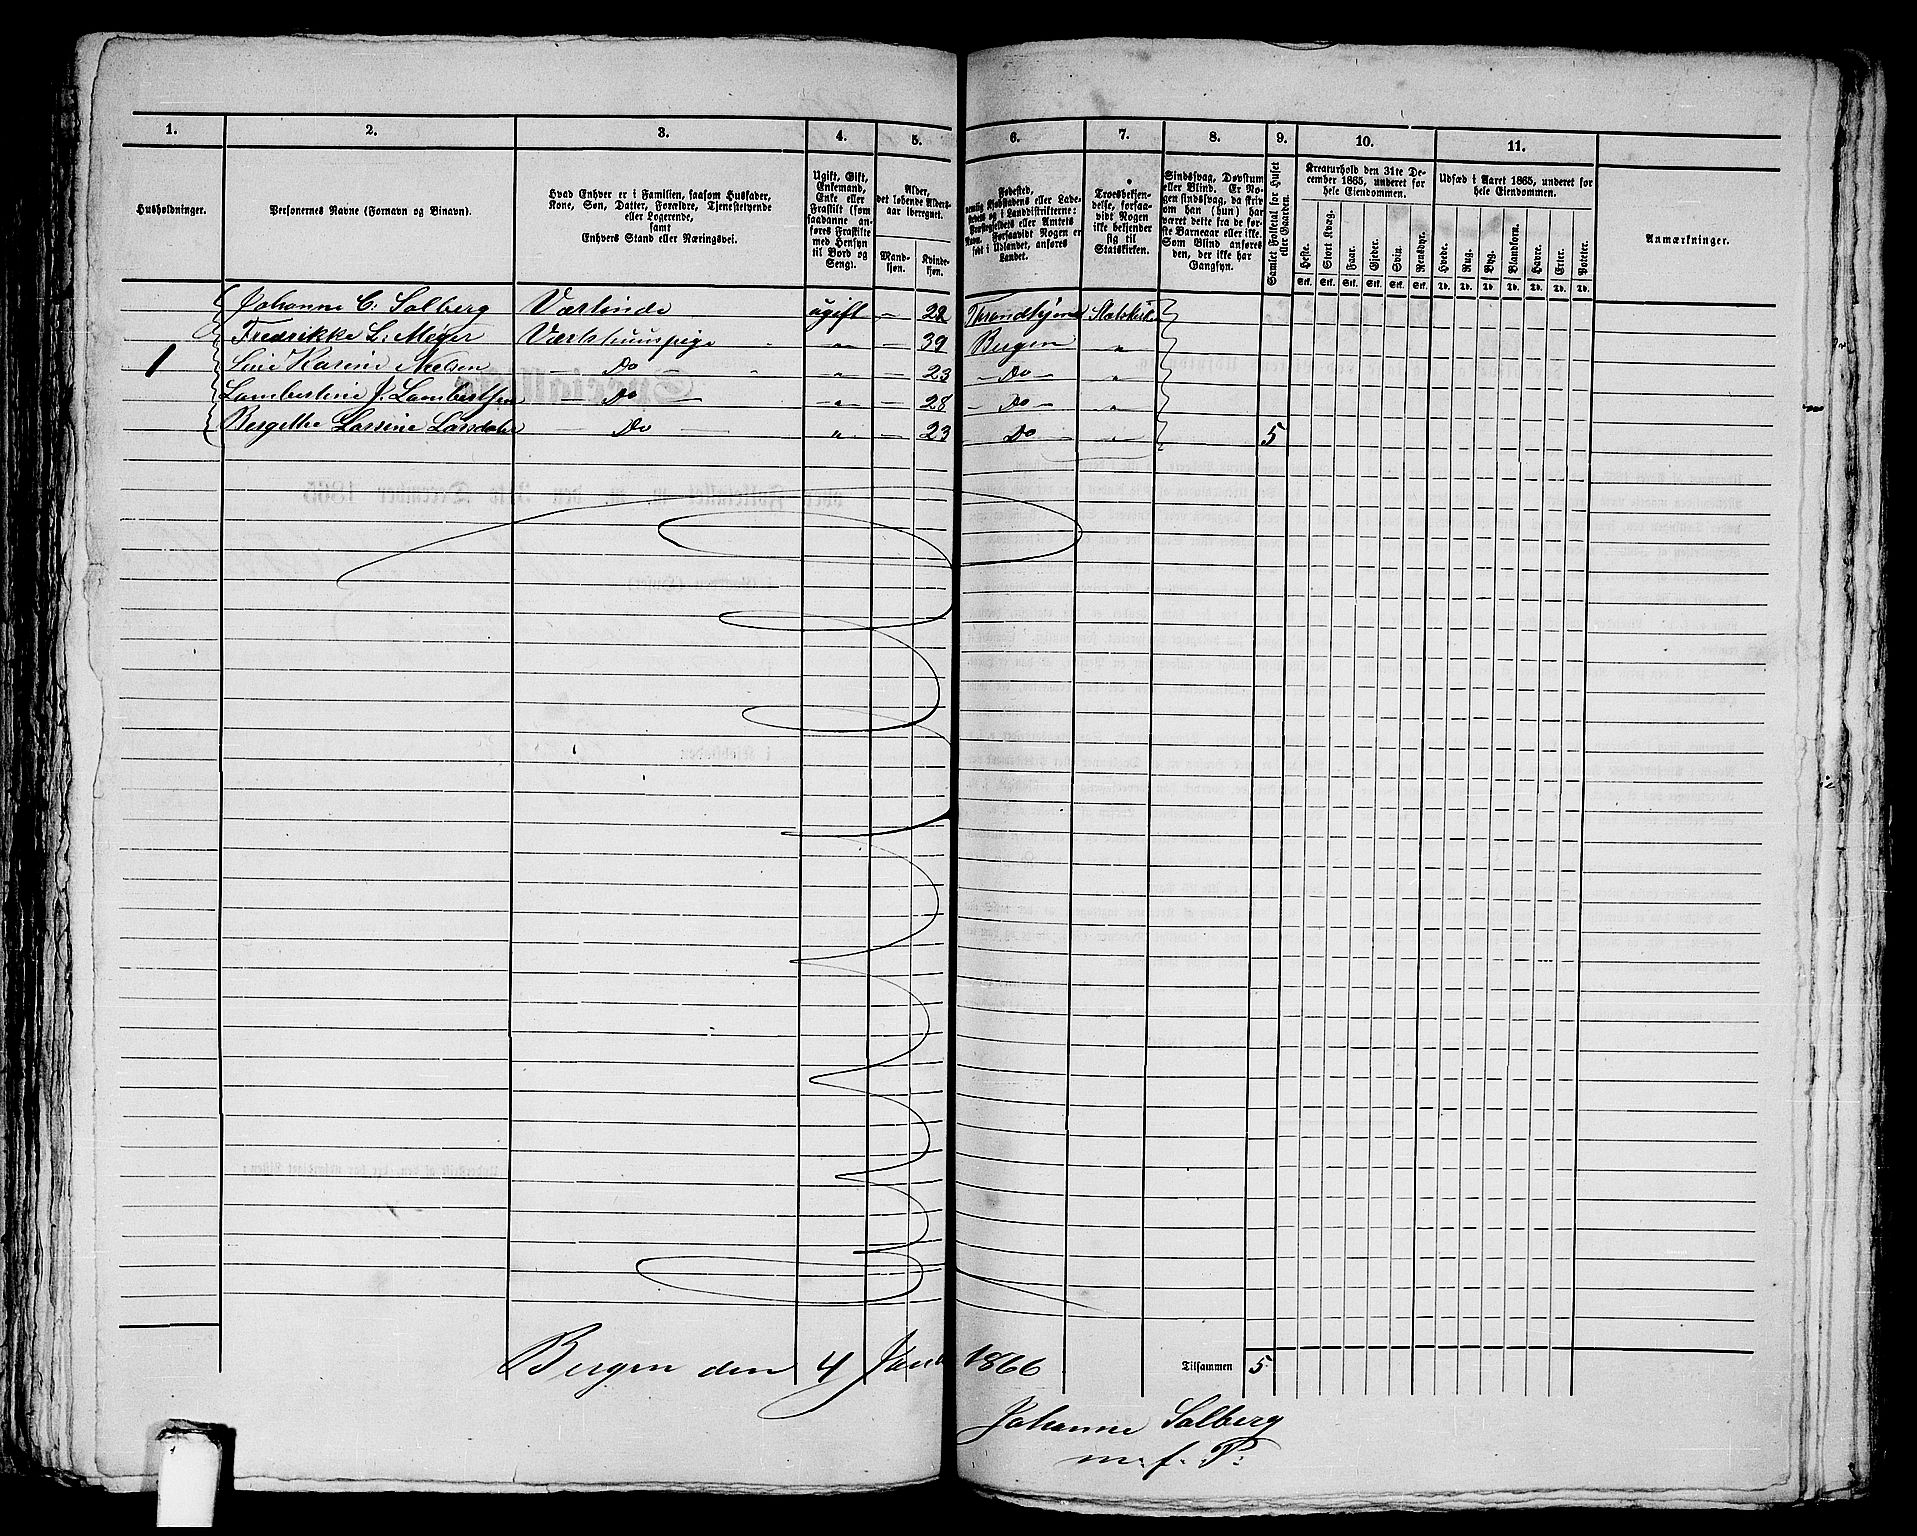 1. 2. 3. 4. 5. 6. 7. 8. 9. 10. 11.
Husholdninger.
Personernes Navne (Fornavn og Binavn).
Hvad Enhver er i Familien, saasom Husfader,
Kone, Søn, Datter, Forældre, Tjenestetyende
eller Logerende,
samt
Enhvers Stand eller Næringsvei.
Ugift, Gift,
Enkemand,
Enke eller
Fraskilt (som
saadanne an-
føres Fraskilte
med Hensyn
til Bord og
Seng).
Alder,
det løbende Alders-
aar iberegnet.
Mand-
kjøn.
Kvinde-
kjøn.
Fødested,
Landet.
Troesbekjen-
delse, forsaa-
vidt Nogen
ikke bekjender
sig til
Statskirken.
Sindssvag, Døvstum
eller Blind. Er No-
gen sindssvag, da skriv
om han (hun) har
været dette fra de før-
ste Barneaar eller ikke.
Som Blind anføres
den, der ikke har
Gangsyn.
Samlet Folketal for Huset
eller Gaarden.
Kreaturhold den 31te De-
cember 1865, underet for
hele Eiendommen.
Heste. Stort Kvæg. Faar. Gjeder. Svin. Rensdyr.
Stk. Stk. Stk. Stk. Stk. Stk.
Udsæd i Aaret 1865, underet for
hele Eiendommen.
Hvede. Rug. Byg. Blandkorn. Havre. Erter. Poteter.
Td. Td. Td. Td. Td. Td. Td.
Anmærkninger.
Johanne C: Solberg Værtinde ugift — 22 Throndhjem Statskirke
Fredrikke L: Meyer Vertshuuspige " — 39 Bergen "
1 Line Karine Nielsen — Do — " — 23 — Do — "
Lambertine J. Lambertsen — Do — " — 28 — Do — "
Bergithe Larsine Larsdatter — Do — " — 23 — Do — " 5
Bergen den 4 Janr 1866 Tilsammen 5
Johanne Solberg
m. f. P: